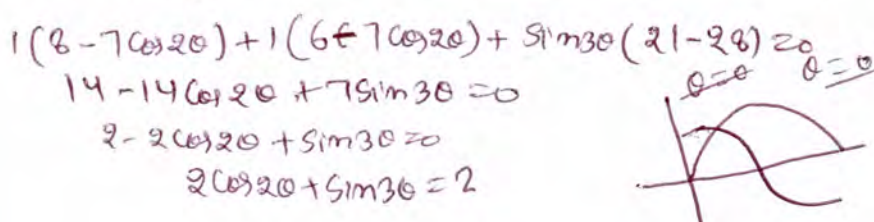 1(8-7cos2θ)+1(6-7cos2θ)+sin3θ(21-28)=0
θ=0 θ=0
14-14cos2θ+7sin3θ=0
2-2cos2θ+sin3θ=0
2cos2θ+sin3θ=2